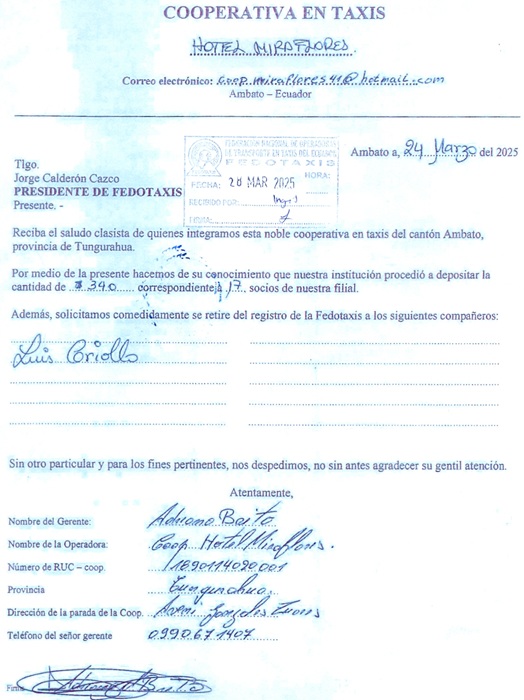 COOPERATIVA EN TAXIS
HOTEL MIRAFLORES.
Correo electrónico: Coop.miraflores41@hotmail.com
Ambato – Ecuador
FEDERACIÓN NACIONAL DE OPERADORAS
DE TRANSPORTE EN TAXIS DEL ECUADOR
FEDOTAXIS
FECHA: 20 MAR 2025 HORA:
RECIBIDO POR:
FIRMA:
Ambato a, 24 Marzo del 2025
Tlgo.
Jorge Calderón Cazco
PRESIDENTE DE FEDOTAXIS
Presente. -
Reciba el saludo clasista de quienes integramos esta noble cooperativa en taxis del cantón Ambato,
provincia de Tungurahua.
Por medio de la presente hacemos de su conocimiento que nuestra institución procedió a depositar la
cantidad de $ 340 correspondiente a 17 socios de nuestra filial.
Además, solicitamos comedidamente se retire del registro de la Fedotaxis a los siguientes compañeros:
Luis Criollo
Sin otro particular y para los fines pertinentes, nos despedimos, no sin antes agradecer su gentil atención.
Atentamente,
Nombre del Gerente: Adriano
Nombre de la Operadora: Coop. Hotel Miraflores.
Número de RUC – coop. 1890114090001
Provincia Tungurahua
Dirección de la parada de la Coop. Gonzales
Teléfono del señor gerente 0990671407
Firma